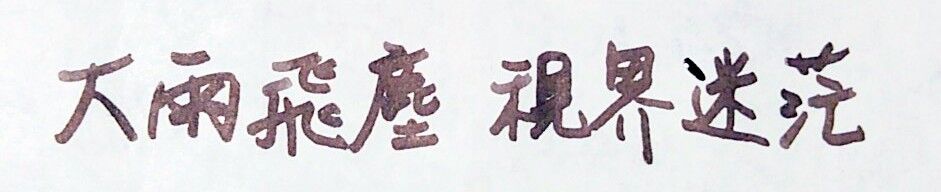 大雨飛塵 視界迷茫